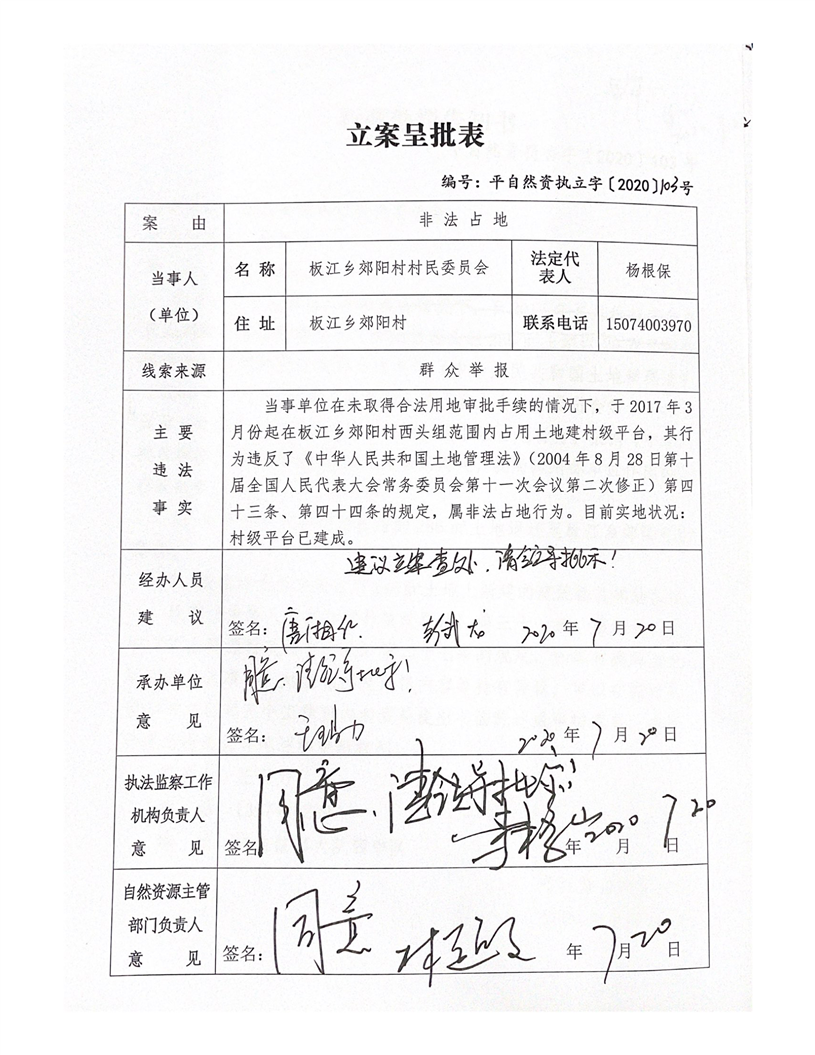 立案呈批表
编号：平自然资执立字〔2020〕103号
案 由 非法占地
当事人（单位） 名称 板江乡郊阳村村民委员会 法定代表人 杨根保
住址 板江乡郊阳村 联系电话 15074003970
线索来源 群众举报
主要违法事实
当事单位在未取得合法用地审批手续的情况下，于2017年3
月份起在板江乡郊阳村西头组范围内占用土地建村级平台，其行
为违反了《中华人民共和国土地管理法》（2004年8月28日第十
届全国人民代表大会常务委员会第十一次会议第二次修正）第四
十三条、第四十四条的规定，属非法占地行为。目前实地状况：
村级平台已建成。
经办人员建议
建议立案查处，请领导批示！
签名： 2020年7月20日
承办单位意见
同意，请领导批示！
签名： 2020年7月20日
执法监察工作机构负责人意见
同意，请领导批示！
签名 2020年7月20日
自然资源主管部门负责人意见
同意
签名： 年7月20日